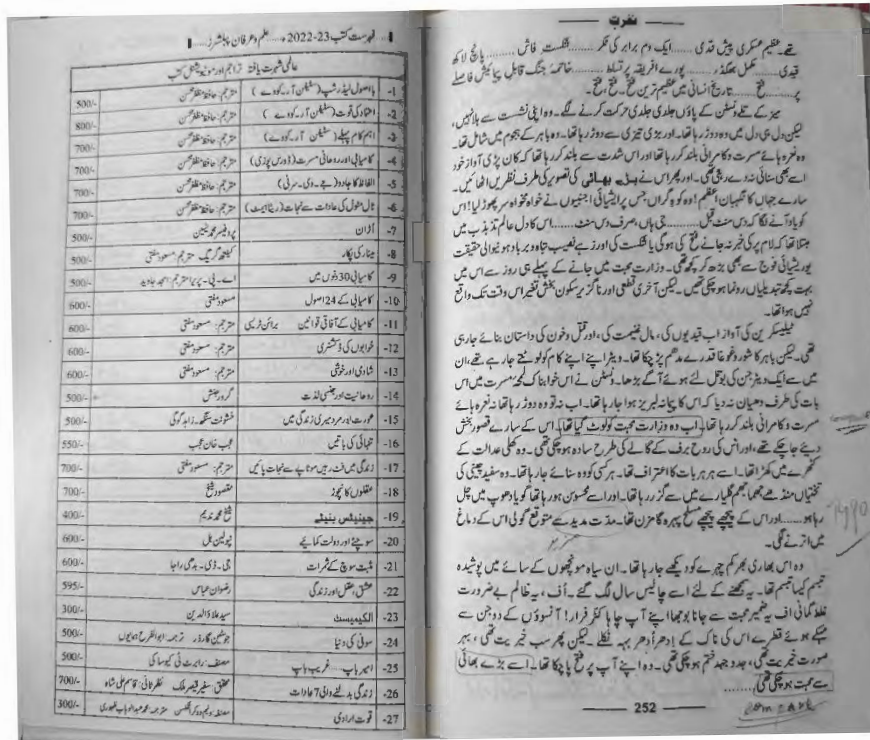 نفرت
تھے۔ عظیم عسکری پیش قدمی ........ ایک دم برابر کی ٹکر ........ شکست فاش ........ پانچ لاکھ
قیدی ........ مکمل بھگدڑ ........ پورے افریقہ پر تسلط ........ خاتمۂ جنگ قابل پیمائش فاصلے
پر ........ فتح ........ تاریخ انسانی میں عظیم ترین فتح۔ فتح، فتح۔
میز کے تلے ونسٹن کے پاؤں جلدی جلدی حرکت کرنے لگے۔ وہ اپنی نشست سے ہلا نہیں،
لیکن دل ہی دل میں وہ دوڑ رہا تھا۔ اور بڑی تیزی سے دوڑ رہا تھا۔ وہ باہر کے ہجوم میں شامل تھا۔
وہ نعرہ ہائے مسرت و کامرانی بلند کر رہا تھا اور اس شدت سے بلند کر رہا تھا کہ کان پڑی آواز خود
اسے بھی سنائی نہ دے رہی تھی۔ اور پھر اس نے بڑے بھائی کی تصویر کی طرف نظریں اٹھائیں۔
سارے جہاں کا نگہبان اعظم! وہ کوہ گراں جس پر ایشیائی اجنبیوں نے خواہ مخواہ سر پھوڑ لیا! اس
کو یاد آنے لگا کہ دس منٹ قبل ........ جی ہاں، صرف دس منٹ ........ اس کا دل عالم تذبذب میں
مبتلا تھا کہ لام پر کی خبر نہ جانے فتح کی ہوگی یا شکست کی اور زہے نصیب تباہ و برباد ہونیوالی حقیقت
یوریشیائی فوج سے بھی بڑھ کر کچھ تھی۔ وزارت محبت میں جانے کے پہلے ہی روز سے اس میں
بہت کچھ تبدیلیاں رونما ہو چکی تھیں۔ لیکن آخری قطعی اور ناگزیر سکون بخش تغیر اس وقت تک واقع
نہیں ہوا تھا۔
ٹیلیسکرین کی آواز اب قیدیوں کی، مال غنیمت کی، اور قتل و خون کی داستان بنائے جا رہی
تھی۔ لیکن باہر کا شور و غوغا قدرے مدھم پڑ چکا تھا۔ ویٹر اپنے اپنے کام کو لوٹتے جا رہے تھے، ان
میں سے ایک ویٹر جن کی بوتل لئے ہوئے آگے بڑھا۔ ونسٹن نے اس خوابناک لمحۂ مسرت میں اس
بات کی طرف دھیان نہ دیا کہ اس کا پیمانہ لبریز ہوا جا رہا تھا۔ اب نہ تو وہ دوڑ رہا تھا نہ نعرہ ہائے
مسرت و کامرانی بلند کر رہا تھا۔ اب وہ وزارت محبت کو لوٹ گیا تھا۔ اس کے سارے قصور بخش
دیئے جا چکے تھے، اور اس کی روح برف کے گالے کی طرح سادہ ہو چکی تھی۔ وہ کھلی عدالت کے
کٹہرے میں کھڑا تھا۔ اسے ہر ہر بات کا اعتراف تھا۔ ہر کسی کو وہ سنائے جا رہا تھا۔ وہ سفید چینی کی
تختیاں منڈھے چھما چھم گلیارے میں سے گزر رہا تھا۔ اور اسے محسوس ہو رہا تھا گویا دھوپ میں چل
رہا ہو ........ اور اس کے پیچھے پیچھے مسلح پہرہ گامزن تھا۔ مدت مدید سے متوقع گولی اس کے دماغ
میں اترنے لگی۔
وہ اس بھاری بھرکم چہرے کو دیکھے جا رہا تھا۔ ان سیاہ مونچھوں کے سائے میں پوشیدہ
تبسم کیسا تبسم تھا۔ یہ سمجھنے کے لئے اسے چالیس سال لگ گئے۔ اُف، یہ ظالم بے ضرورت
غلط گمانی اف یہ ضمیر محبت سے جانا بوجھا اپنے آپ چاہا کفر فرار! آنسوؤں کے دو جن سے
مہکے ہوئے قطرے اس کی ناک کے ادھر اُدھر بہہ نکلے۔ لیکن پھر سب خیریت تھی، بہر
صورت خیریت تھی، جدوجہد ختم ہو چکی تھی۔ وہ اپنے آپ پر فتح پا چکا تھا۔ اسے بڑے بھائی
سے محبت ہو چکی تھی ........
252
compare
فہرست کتب 23-2022ء ..... علم و عرفان پبلشرز .....
عالمی شہرت یافتہ تراجم اور موٹیویشنل کتب
-1 بااصول لیڈر شپ (سٹیفن آر۔ کووے) مترجم: حافظ مظفر محسن 500/-
-2 اعتماد کی قوت (سٹیفن آر۔ کووے) مترجم: حافظ مظفر محسن 800/-
-3 اہم کام پہلے (سٹیفن آر۔ کووے) مترجم: حافظ مظفر محسن 700/-
-4 کامیابی اور روحانی مسرت (ڈورس پوزی) مترجم: حافظ مظفر محسن 700/-
-5 الفاظ کا جادو (جے۔ وی۔ سرنی) مترجم: حافظ مظفر محسن 700/-
-6 ٹال مٹول کی عادات سے نجات (ریٹا ایمٹ) مترجم: حافظ مظفر محسن 700/-
-7 اُڑان پروفیسر محمد یٰسین 500/-
-8 مینار کی پکار کیلتھ گریگ مترجم: مسعود مفتی 500/-
-9 کامیابی 30 دنوں میں اے۔ پی۔ پریرا مترجم: امجد جاوید 500/-
-10 کامیابی کے 24 اصول مسعود مفتی 600/-
-11 کامیابی کے آفاقی قوانین برائن ٹریسی مترجم: مسعود مفتی 600/-
-12 خوابوں کی ڈکشنری مترجم: مسعود مفتی 600/-
-13 شادی اور خوشی مترجم: مسعود مفتی 600/-
-14 روحانیت اور جنسی لذت گرورجنیش 500/-
-15 عورت اور مرد میری زندگی میں خشونت سنگھ۔ زاہد گوگی 500/-
-16 تنہائی کی باتیں عجب خان عجب 550/-
-17 زندگی میں فٹ رہیں موٹاپے سے نجات پائیں مترجم: مسعود مفتی 700/-
-18 عقلوں کا نچوڑ مقصود شیخ 700/-
-19 جینیئس بنیئے شیخ محمد ندیم 400/-
-20 سوچئے اور دولت کمائیے نپولین ہل 600/-
-21 مثبت سوچ کے ثمرات جی۔ ڈی۔ بدھی راجا 600/-
-22 عشق، عقل اور زندگی رضوان عباس 595/-
-23 الکیمیسٹ سید علاؤ الدین 300/-
-24 سوفی کی دنیا جوسٹین گارڈر ترجمہ: ابوالفرح ہمایوں 500/-
-25 امیر باپ .... غریب باپ مصنف: رابرٹ ٹی کیوساکی 500/-
-26 زندگی بدلنے والی 7 عادات محقق: سفیر قیصر ملک نظرثانی: قاسم علی شاہ 700/-
-27 قوت ارادی مترجم: محمد عبدالوہاب ظہوری 300/-